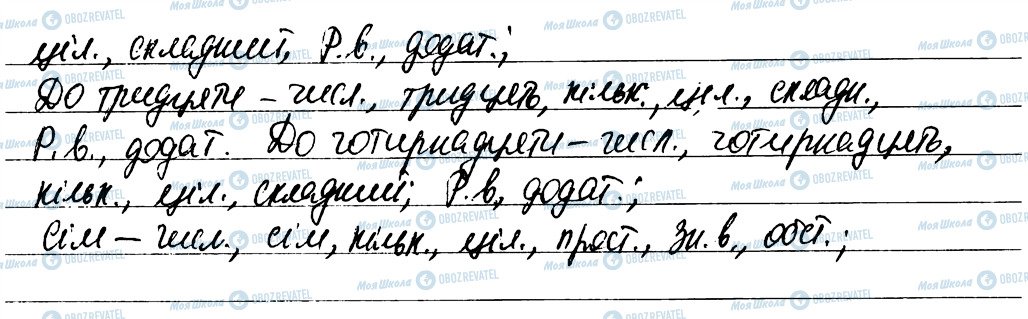 ціл., складний, Р.в., додат.;
До тридцяти – числ., тридцять, кільк., ціл., складн.,
Р.в., додат. До чотирнадцяти – числ., чотирнадцять,
кільк., ціл., складний, Р.в, додат.;
Сім – числ., сім, кільк., ціл., прост., Зн.в., обст.;